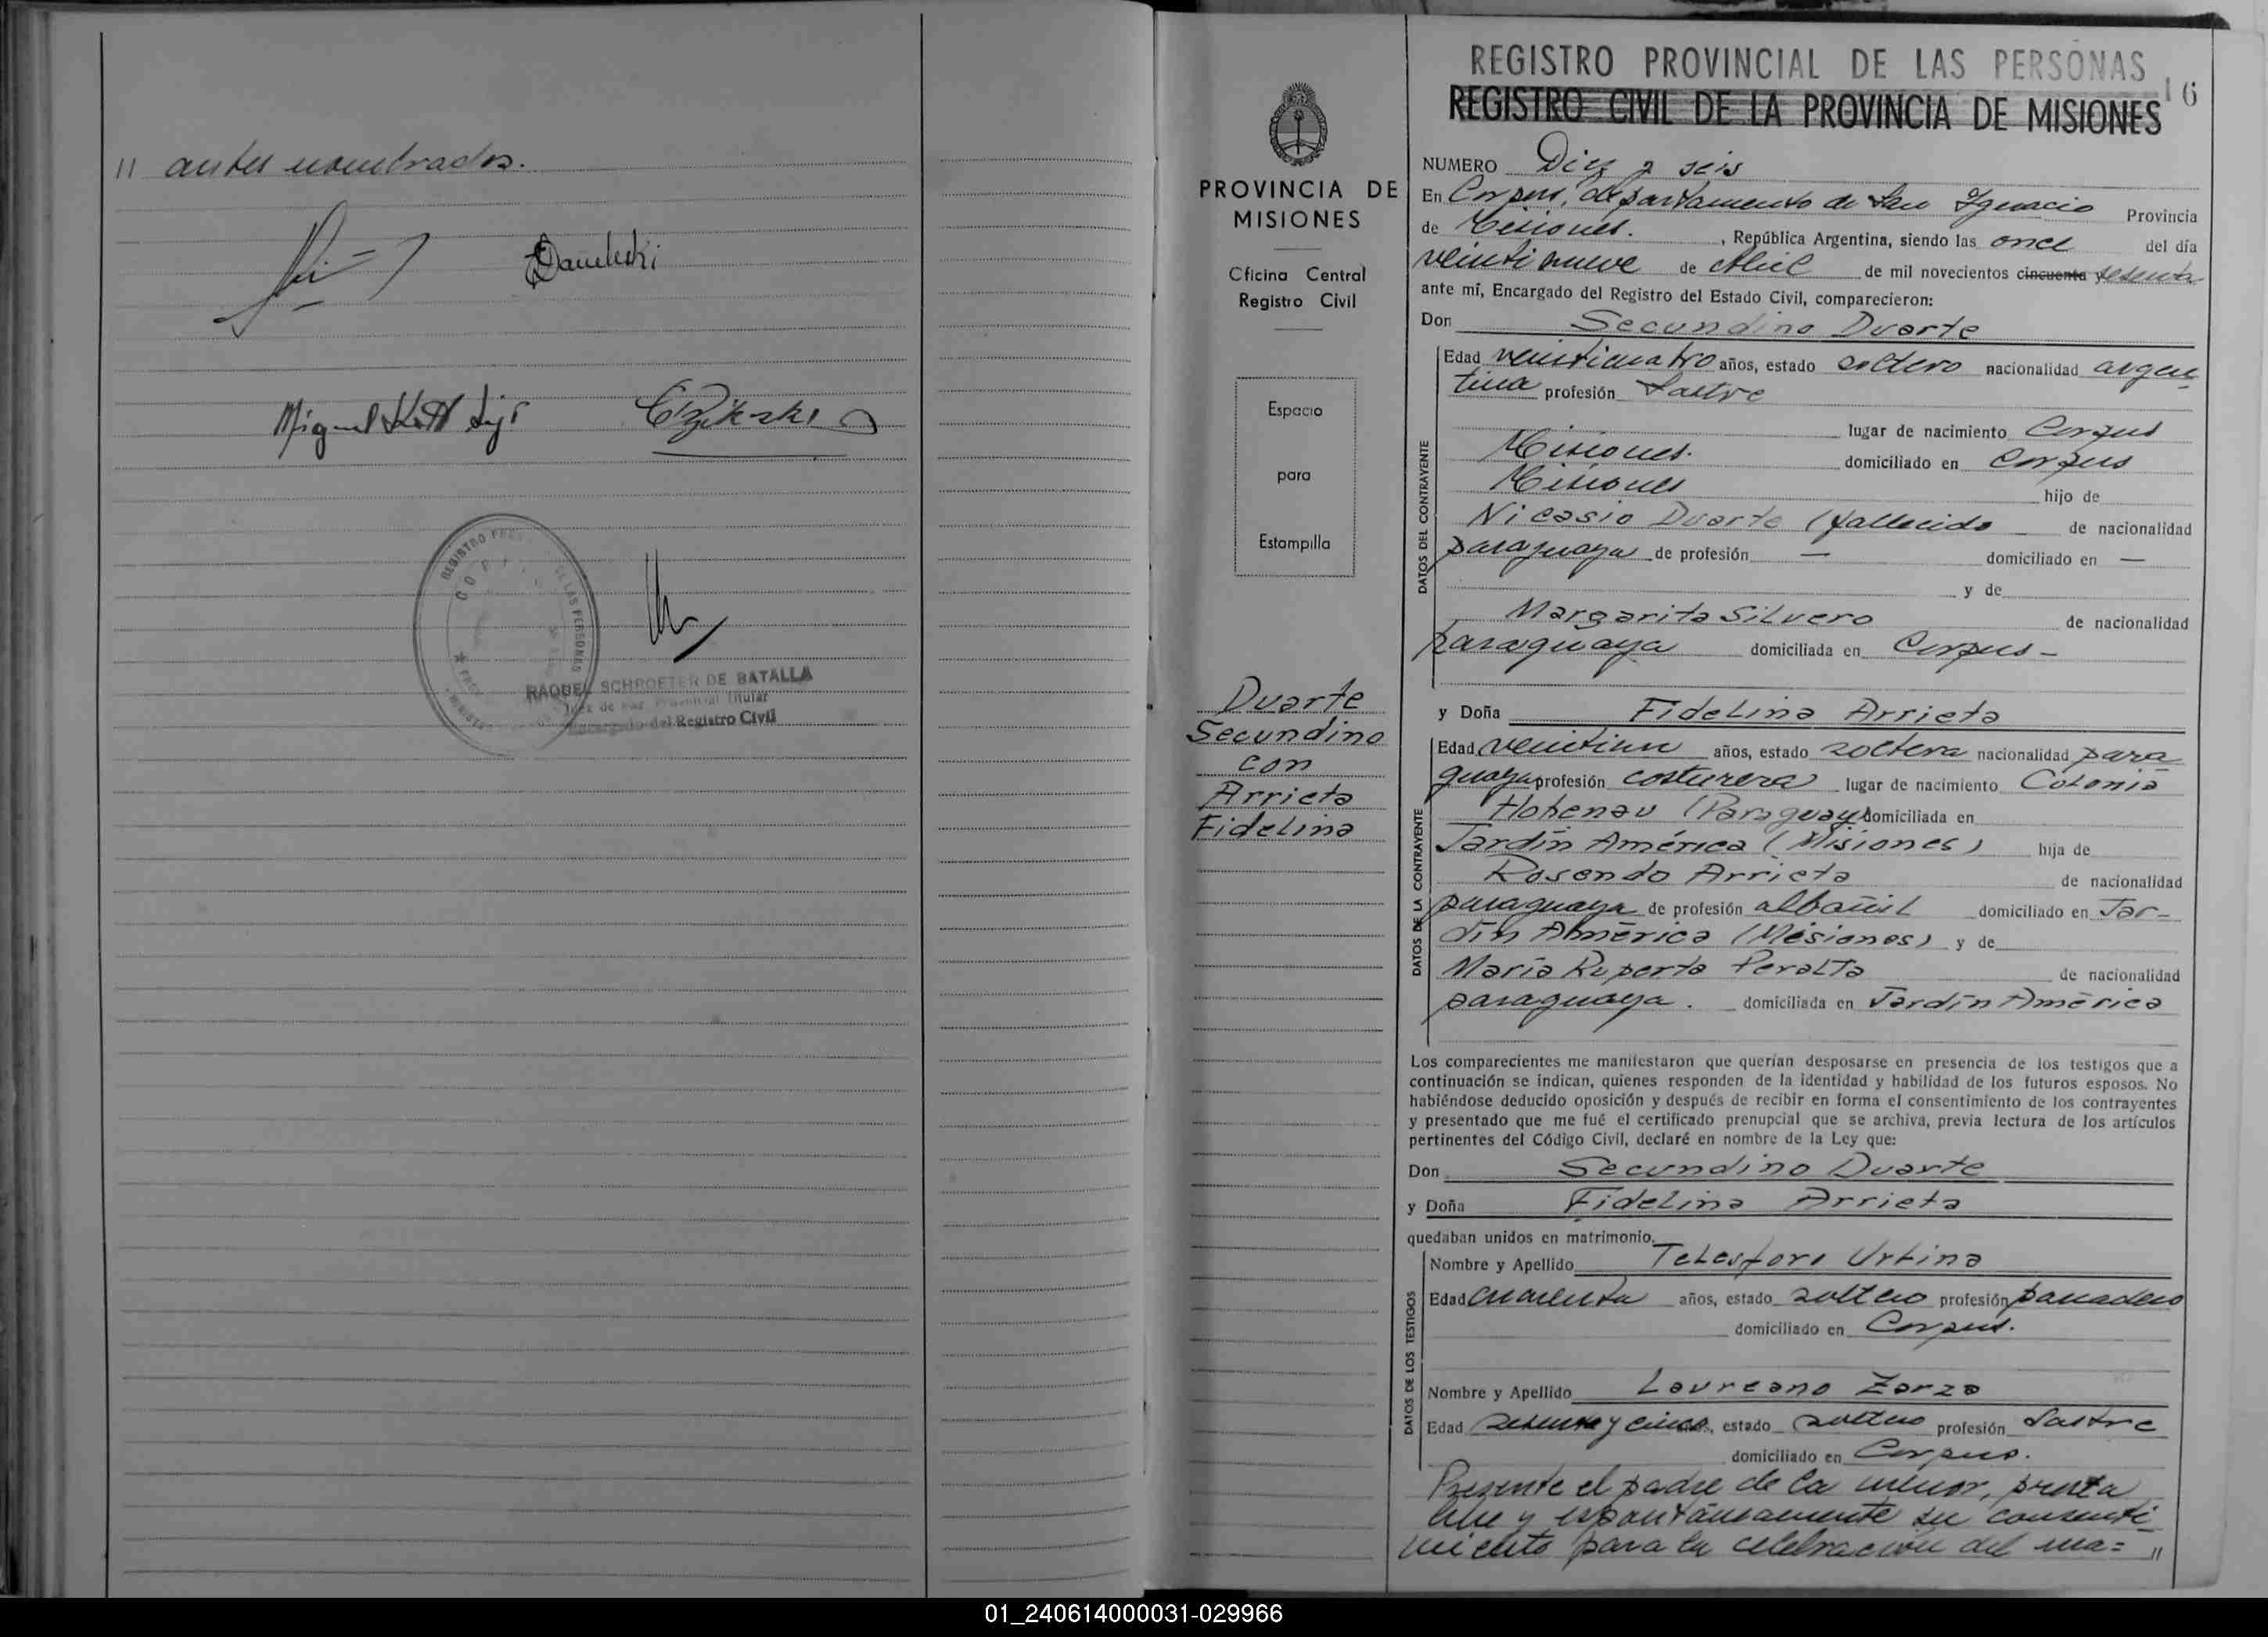 " antes nombrados.
Miguel
REGISTRO PROV
DE LAS PERSONAS
RAQUEL SCHROETER DE BATALLA
Juez de Paz Provincial Titular
Encargado del Registro Civil
PROVINCIA DE
MISIONES
Oficina Central
Registro Civil
Espacio
para
Estampilla
Duarte
Secundino
con
Arrieta
Fidelina
REGISTRO PROVINCIAL DE LAS PERSONAS
16
REGISTRO CIVIL DE LA PROVINCIA DE MISIONES
NUMERO Diez y seis
En Corpus, departamento de San Ignacio Provincia
de Misiones. , República Argentina, siendo las once del día
veintinueve de Abril de mil novecientos cincuenta y sesenta
ante mí, Encargado del Registro del Estado Civil, comparecieron:
Don Secundino Duarte
DATOS DEL CONTRAYENTE
Edad veinticuatro años, estado soltero nacionalidad argen
tina profesión Sastre
lugar de nacimiento Corpus
Misiones. domiciliado en Corpus
Misiones hijo de
Nicasio Duarte (fallecido de nacionalidad
paraguaya de profesión — domiciliado en —
y de
Margarita Silvero de nacionalidad
paraguaya domiciliada en Corpus -
y Doña Fidelina Arrieta
DATOS DE LA CONTRAYENTE
Edad veintiun años, estado soltera nacionalidad para
guaya profesión costurera lugar de nacimiento Colonia
Hohenau (Paraguay) domiciliada en
Jardín América (Misiones) hija de
Rosendo Arrieta de nacionalidad
paraguaya de profesión albañil domiciliado en Jar-
dín América (Misiones) y de
María Ruperta Peralta de nacionalidad
paraguaya. domiciliada en Jardín América
Los comparecientes me manifestaron que querían desposarse en presencia de los testigos que a
continuación se indican, quienes responden de la identidad y habilidad de los futuros esposos. No
habiéndose deducido oposición y después de recibir en forma el consentimiento de los contrayentes
y presentado que me fué el certificado prenupcial que se archiva, previa lectura de los artículos
pertinentes del Código Civil, declaré en nombre de la Ley que:
Don Secundino Duarte
y Doña Fidelina Arrieta
quedaban unidos en matrimonio.
DATOS DE LOS TESTIGOS
Nombre y Apellido Telesforo Urbina
Edad cuarenta años, estado soltero profesión panadero
domiciliado en Corpus.
Nombre y Apellido Laureano Zarza
Edad setenta y cinco, estado soltero profesión Sastre
domiciliado en Corpus.
Presente el padre de la menor, presta
libre y espontáneamente su consenti-
miento para la celebración del ma= "
01_240614000031-029966